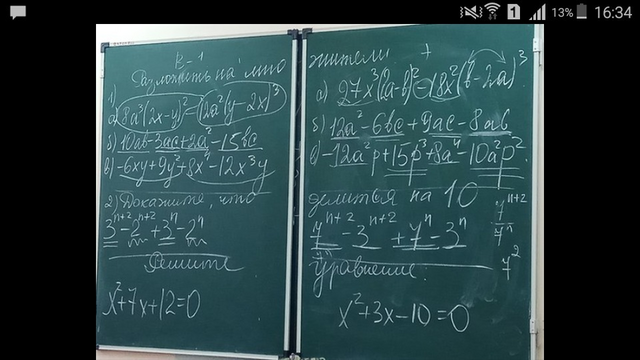 13% 16:34
В-1
Разложить на мно
1)
а) 8a³(2x-y)²-12a²(y-2x)³
б) 10ab-3ac+2a²-15bc
в) -6xy+9y²+8x⁴-12x³y
2) Докажите, что
3ⁿ⁺²-2ⁿ⁺²+3ⁿ-2ⁿ
Решите
x²+7x+12=0
жители
а) 27x³(2a-b)²-18x²(b-2a)³
б) 12a²-6bc+9ac-8ab
в) -12a²p+15p³+8a⁴-10a²p²
делится на 10
7ⁿ⁺²-3ⁿ⁺²+7ⁿ-3ⁿ
7ⁿ⁺²
7ⁿ
7²
уравнение:
x²+3x-10=0